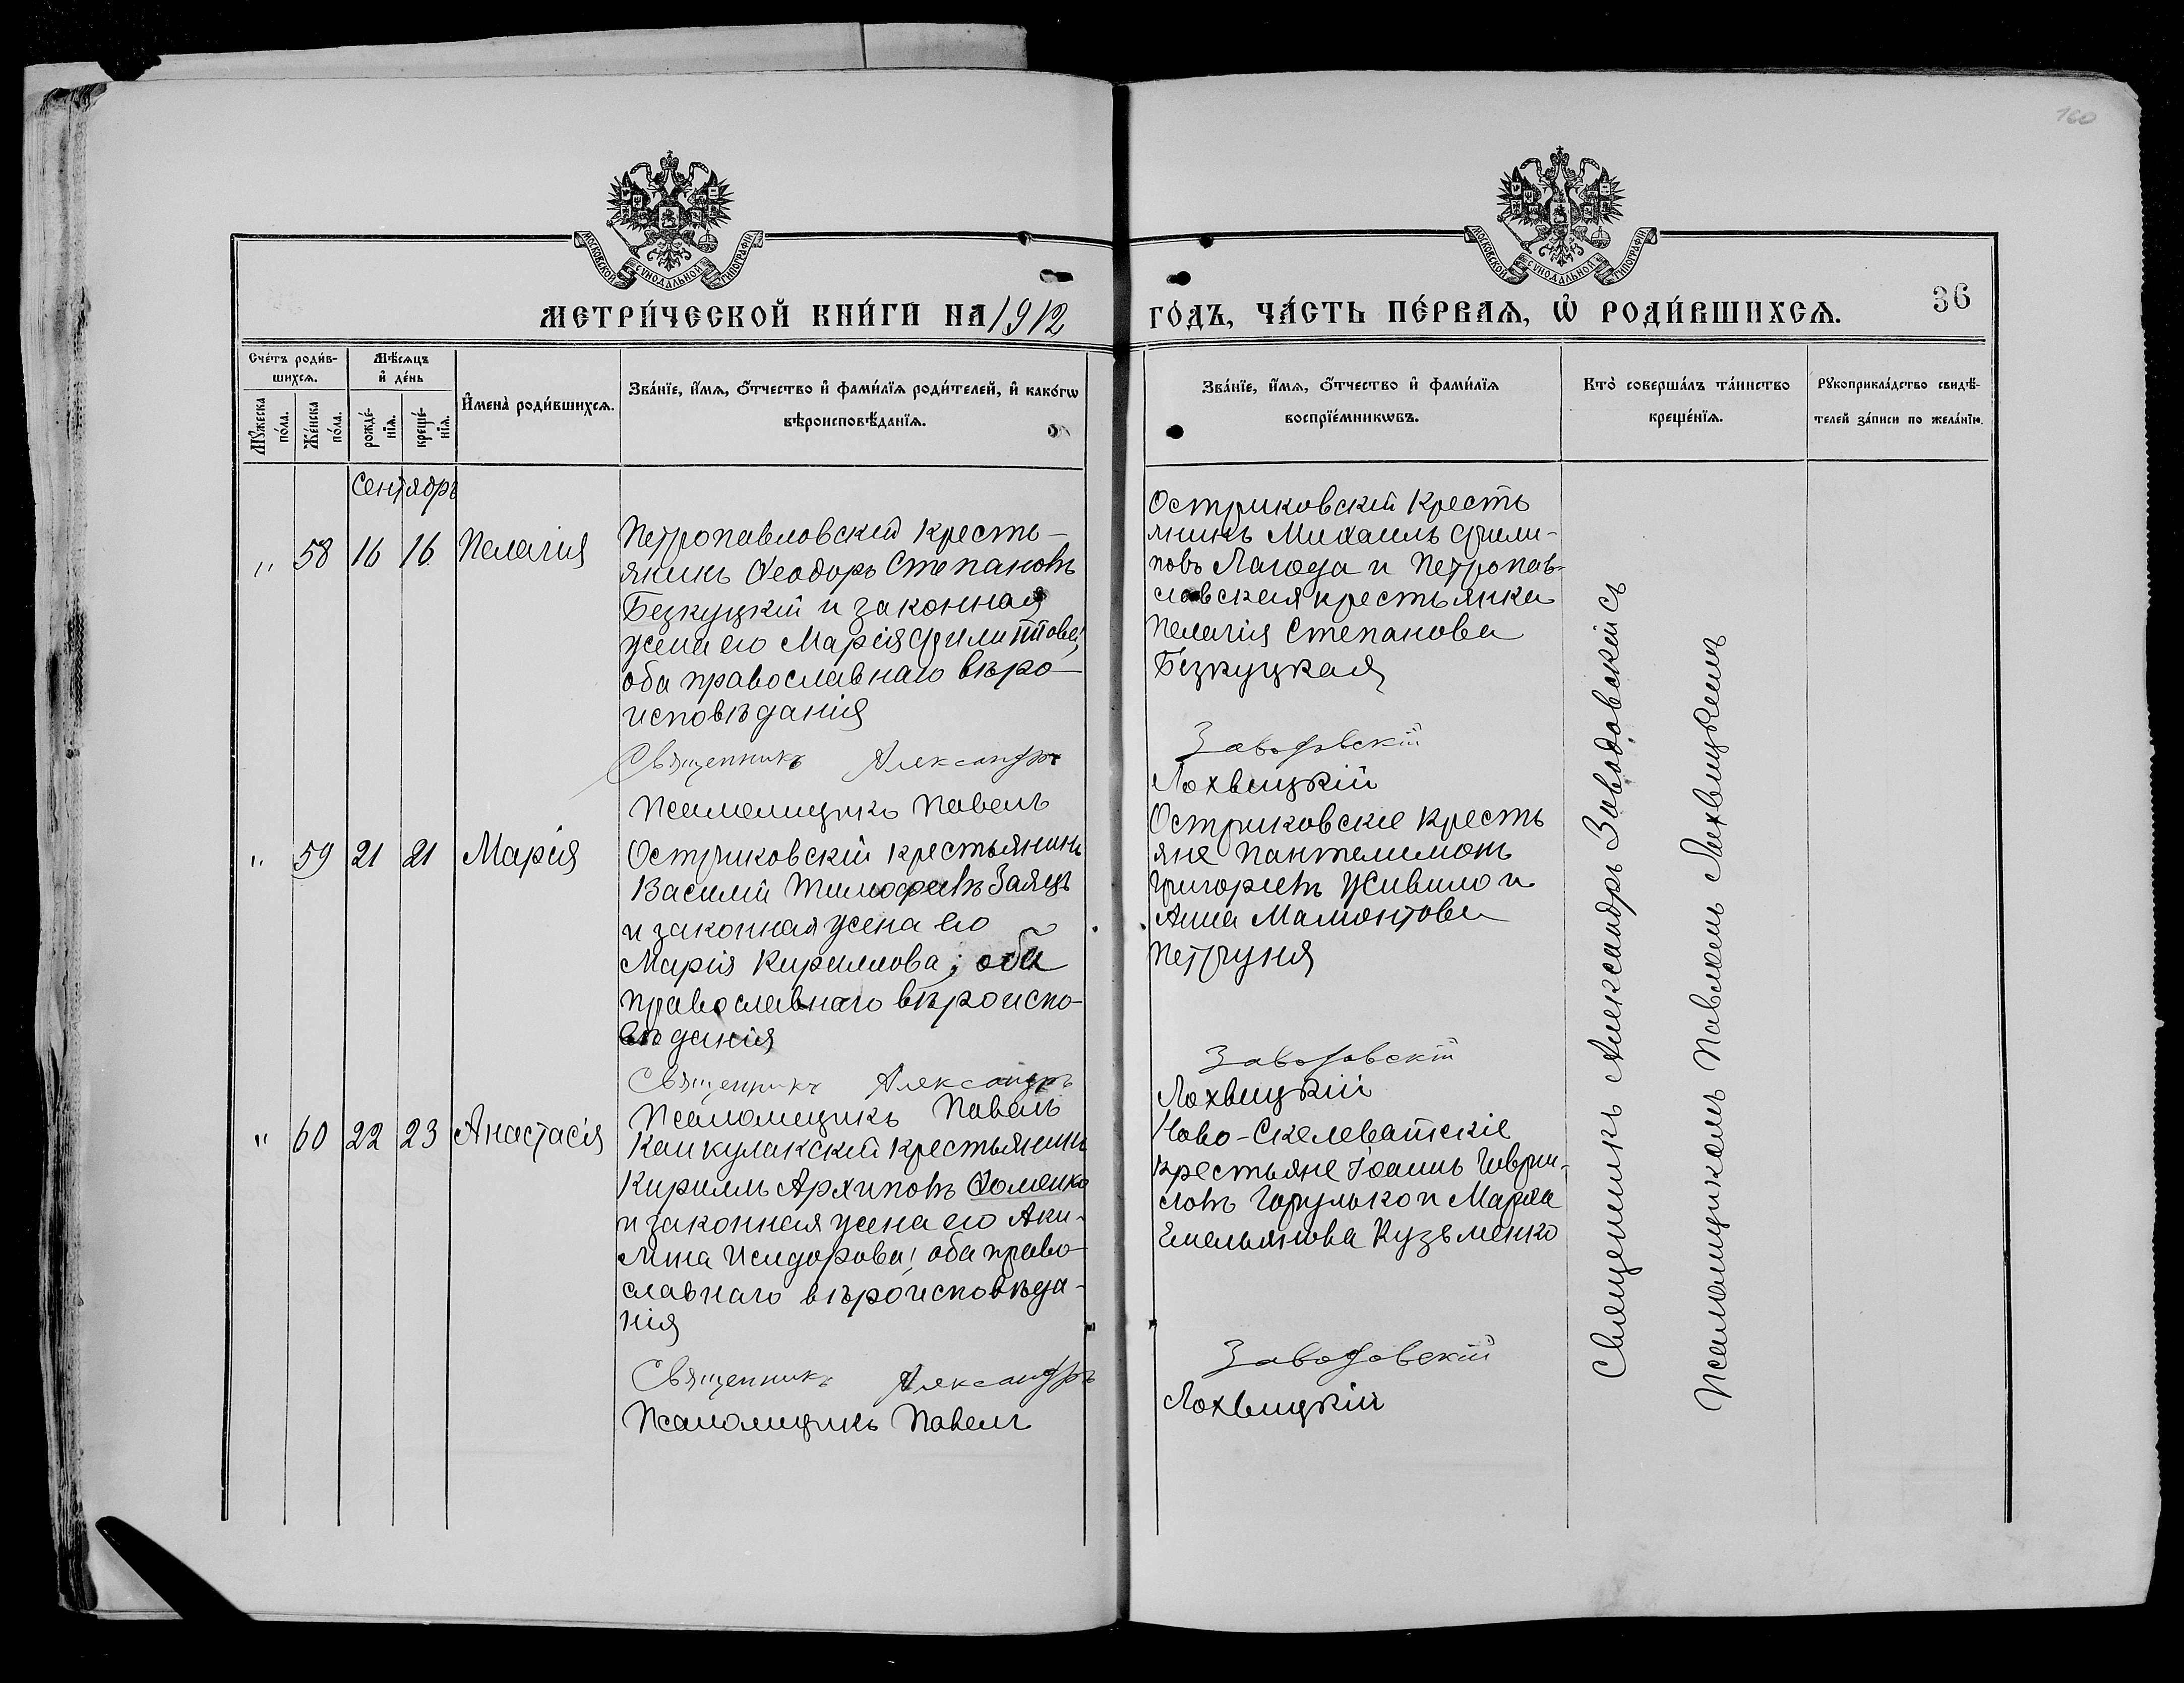 160
МОСКОВСКОЙ СѴНОДАЛЬНОЙ ТИПОГРАФІИ
МОСКОВСКОЙ СѴНОДАЛЬНОЙ ТИПОГРАФІИ
МЕТРИ́ЧЕСКОЙ КНИ́ГИ НА 1912
ГО́ДЪ, ЧА́СТЬ ПЕ́РВАѦ, Ѽ РОДИ́ВШИХСѦ.
36
Сче́тъ роди́в-
шихсѧ.
Мꙋ́жеска по́ла.
Же́нска по́ла.
Мѣ́сѧцъ
и҆ де́нь
рожде́-
нїѧ.
креще́-
нїѧ.
И҆мена̀ роди́вшихсѧ.
Зва́нїе, и҆́мѧ, ѻ҆́тчество и҆ фами́лїѧ роди́телей, и҆ како́гѡ
вѣроисповѣ́данїѧ.
Зва́нїе, и҆́мѧ, ѻ҆́тчество и҆ фами́лїѧ
воспрїе́мникѡвъ.
Кто̀ соверша́лъ та́инство
креще́нїѧ.
Рꙋкоприкла́дство свидѣ́-
телей за́писи по жела́нїю.
Сентябрь
" 58 16 16 Пелагія
Петропавловскій кресть-
янинъ Ѳеодоръ Степановъ
Безкуцкій и законная
жена его Марія Филиппова;
оба православнаго вѣро-
исповѣданія
Священникъ Александръ
Псаломщикъ Павелъ
Остриковскій кресть
янинъ Михаилъ Фили-
повъ Лагода и Петропав-
ловская крестьянка
Пелагія Степанова
Безкуцкая
Заводовскій
Лохвицкій
" 59 21 21 Марія
Остриковскій крестьянинъ
Василій Тимофеевъ Заяцъ
и законная жена его
Марія Кириллова; оба
православнаго вѣроиспо-
вѣданія
Священникъ Александръ
Псаломщикъ Павелъ
Остриковскіе кресть
яне Пантелимонъ
Григорьевъ Живило и
Анна Мамонтова
Петруня
Заводовскій
Лохвицкій
" 60 22 23 Анастасія
Канкулакскій крестьянинъ
Кириллъ Архиповъ Ѳоменко
и законная жена его Аки-
лина Исидорова; оба право-
славнаго вѣроисповѣда-
нія
Священникъ Александръ
Псаломщикъ Павелъ
Ново-Скелеватскіе
крестьяне Іоаннъ Гаври-
ловъ Горулько и Марѳа
Емельянова Кузьменко
Заводовскій
Лохвицкій
Священникъ Александръ Заводовскій съ
Псаломщикомъ Павломъ Лохвицкимъ